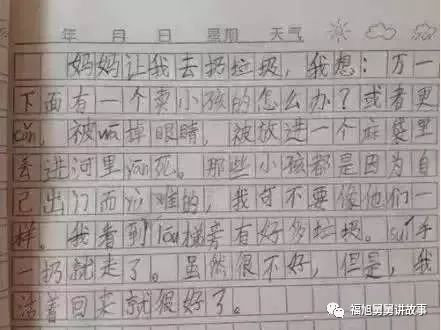 年 月 日 星期 天气
妈妈让我去扔垃圾，我想：万一
下面有一个卖小孩的怎么办？或者更
cǎn，被wā掉眼睛，被放进一个麻袋里
丢进河里yān死。那些小孩都是因为自
己出门而yù难的，我可不要像他们一
样。我看到lóu梯旁有好多垃圾。suí手
一扔就走了。虽然很不好，但是，我
活着回来就很好了。
福旭舅舅讲故事